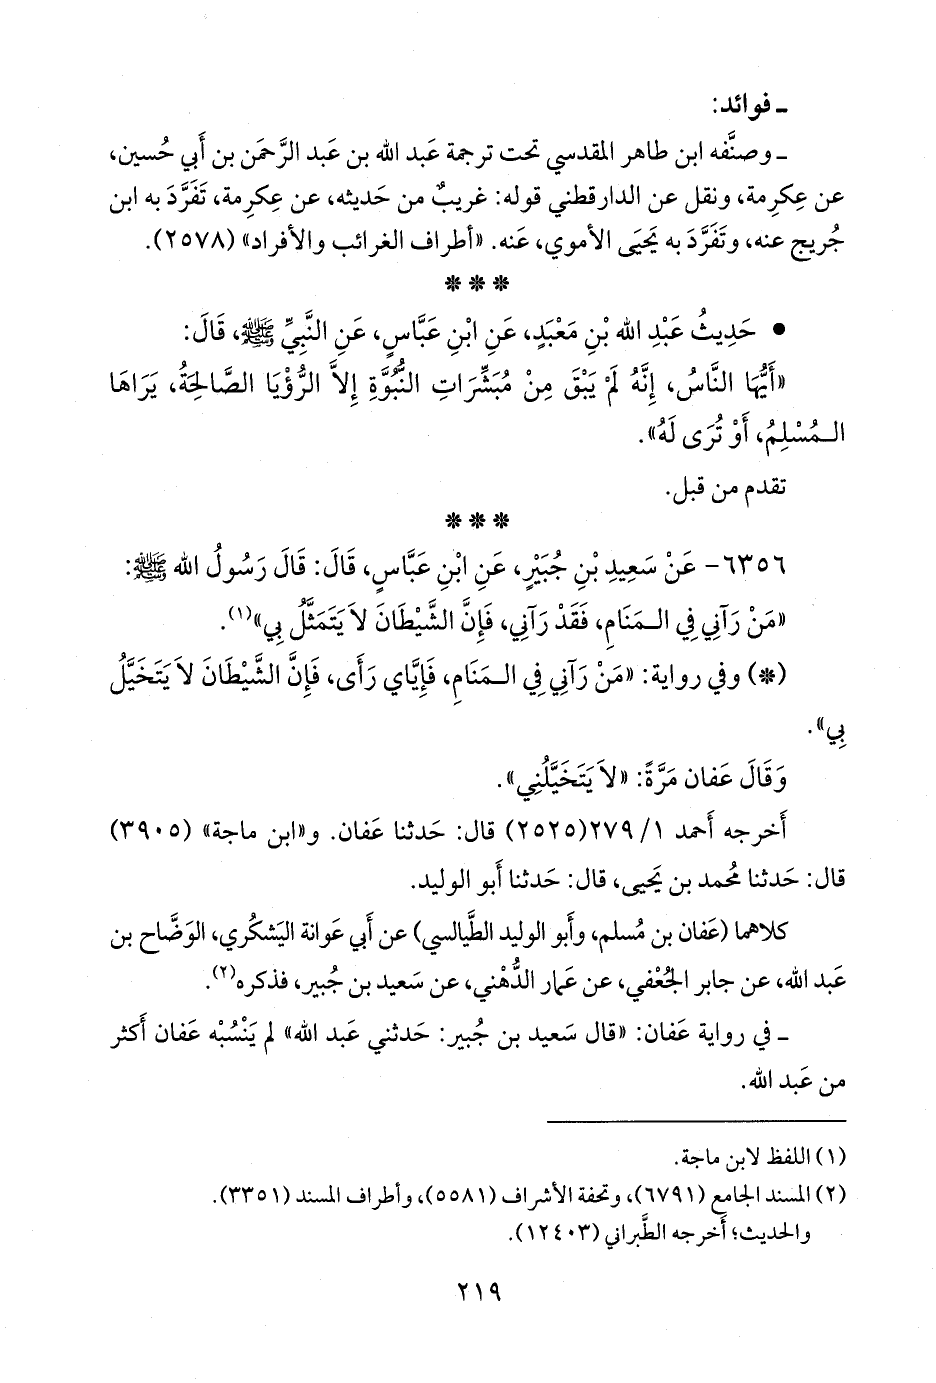 ـ فوائد:
ـ وصنَّفه ابن طاهر المقدسي تحت ترجمة عَبد الله بن عَبد الرَّحمَن بن أَبي حُسين،
عن عِكرِمة، ونقل عن الدارقطني قوله: غريبٌ من حَديثه، عن عِكرِمة، تَفَرَّدَ به ابن
جُريج عنه، وتَفَرَّدَ به يَحيَى الأموي، عَنه. «أطراف الغرائب والأفراد» (٢٥٧٨).
* * *
• حَدِيثُ عَبْدِ الله بْنِ مَعْبَدٍ، عَنِ ابْنِ عَبَّاسٍ، عَنِ النَّبِيِّ ﷺ، قَالَ:
«أَيُّهَا النَّاسُ، إِنَّهُ لَمْ يَبْقَ مِنْ مُبَشِّرَاتِ النُّبُوَّةِ إِلاَّ الرُّؤْيَا الصَّالِحَةُ، يَرَاهَا
الـمُسْلِمُ، أَوْ تُرَى لَهُ».
تقدم من قبل.
* * *
٦٣٥٦- عَنْ سَعِيدِ بْنِ جُبَيْرٍ، عَنِ ابْنِ عَبَّاسٍ، قَالَ: قَالَ رَسُولُ الله ﷺ:
«مَنْ رَآنِي فِي الـمَنَامِ، فَقَدْ رَآنِي، فَإِنَّ الشَّيْطَانَ لاَ يَتَمَثَّلُ بِي»(١).
(*) وفي رواية: «مَنْ رَآنِي فِي الـمَنَامِ، فَإِيَّايَ رَأَى، فَإِنَّ الشَّيْطَانَ لاَ يَتَخَيَّلُ
بِي».
وَقَالَ عَفان مَرَّةً: «لاَ يَتَخَيَّلُنِي».
أَخرجه أَحمد ١/ ٢٧٩(٢٥٢٥) قال: حَدثنا عَفان. و«ابن ماجة» (٣٩٠٥)
قال: حَدثنا مُحمد بن يَحيى، قال: حَدثنا أَبو الوليد.
كلاهما (عَفان بن مُسلم، وأَبو الوليد الطَّيالسي) عن أَبي عَوانة اليَشكُري، الوَضَّاح بن
عَبد الله، عن جابر الجُعْفي، عن عَمار الدُّهْني، عن سَعيد بن جُبير، فذكره(٢).
ـ في رواية عَفان: «قال سَعيد بن جُبير: حَدثني عَبد الله» لم يَنْسُبْه عَفان أَكثر
من عَبد الله.
(١) اللفظ لابن ماجة.
(٢) المسند الجامع (٦٧٩١)، وتحفة الأشراف (٥٥٨١)، وأطراف المسند (٣٣٥١).
والحديث؛ أَخرجه الطَّبراني (١٢٤٠٣).
٢١٩